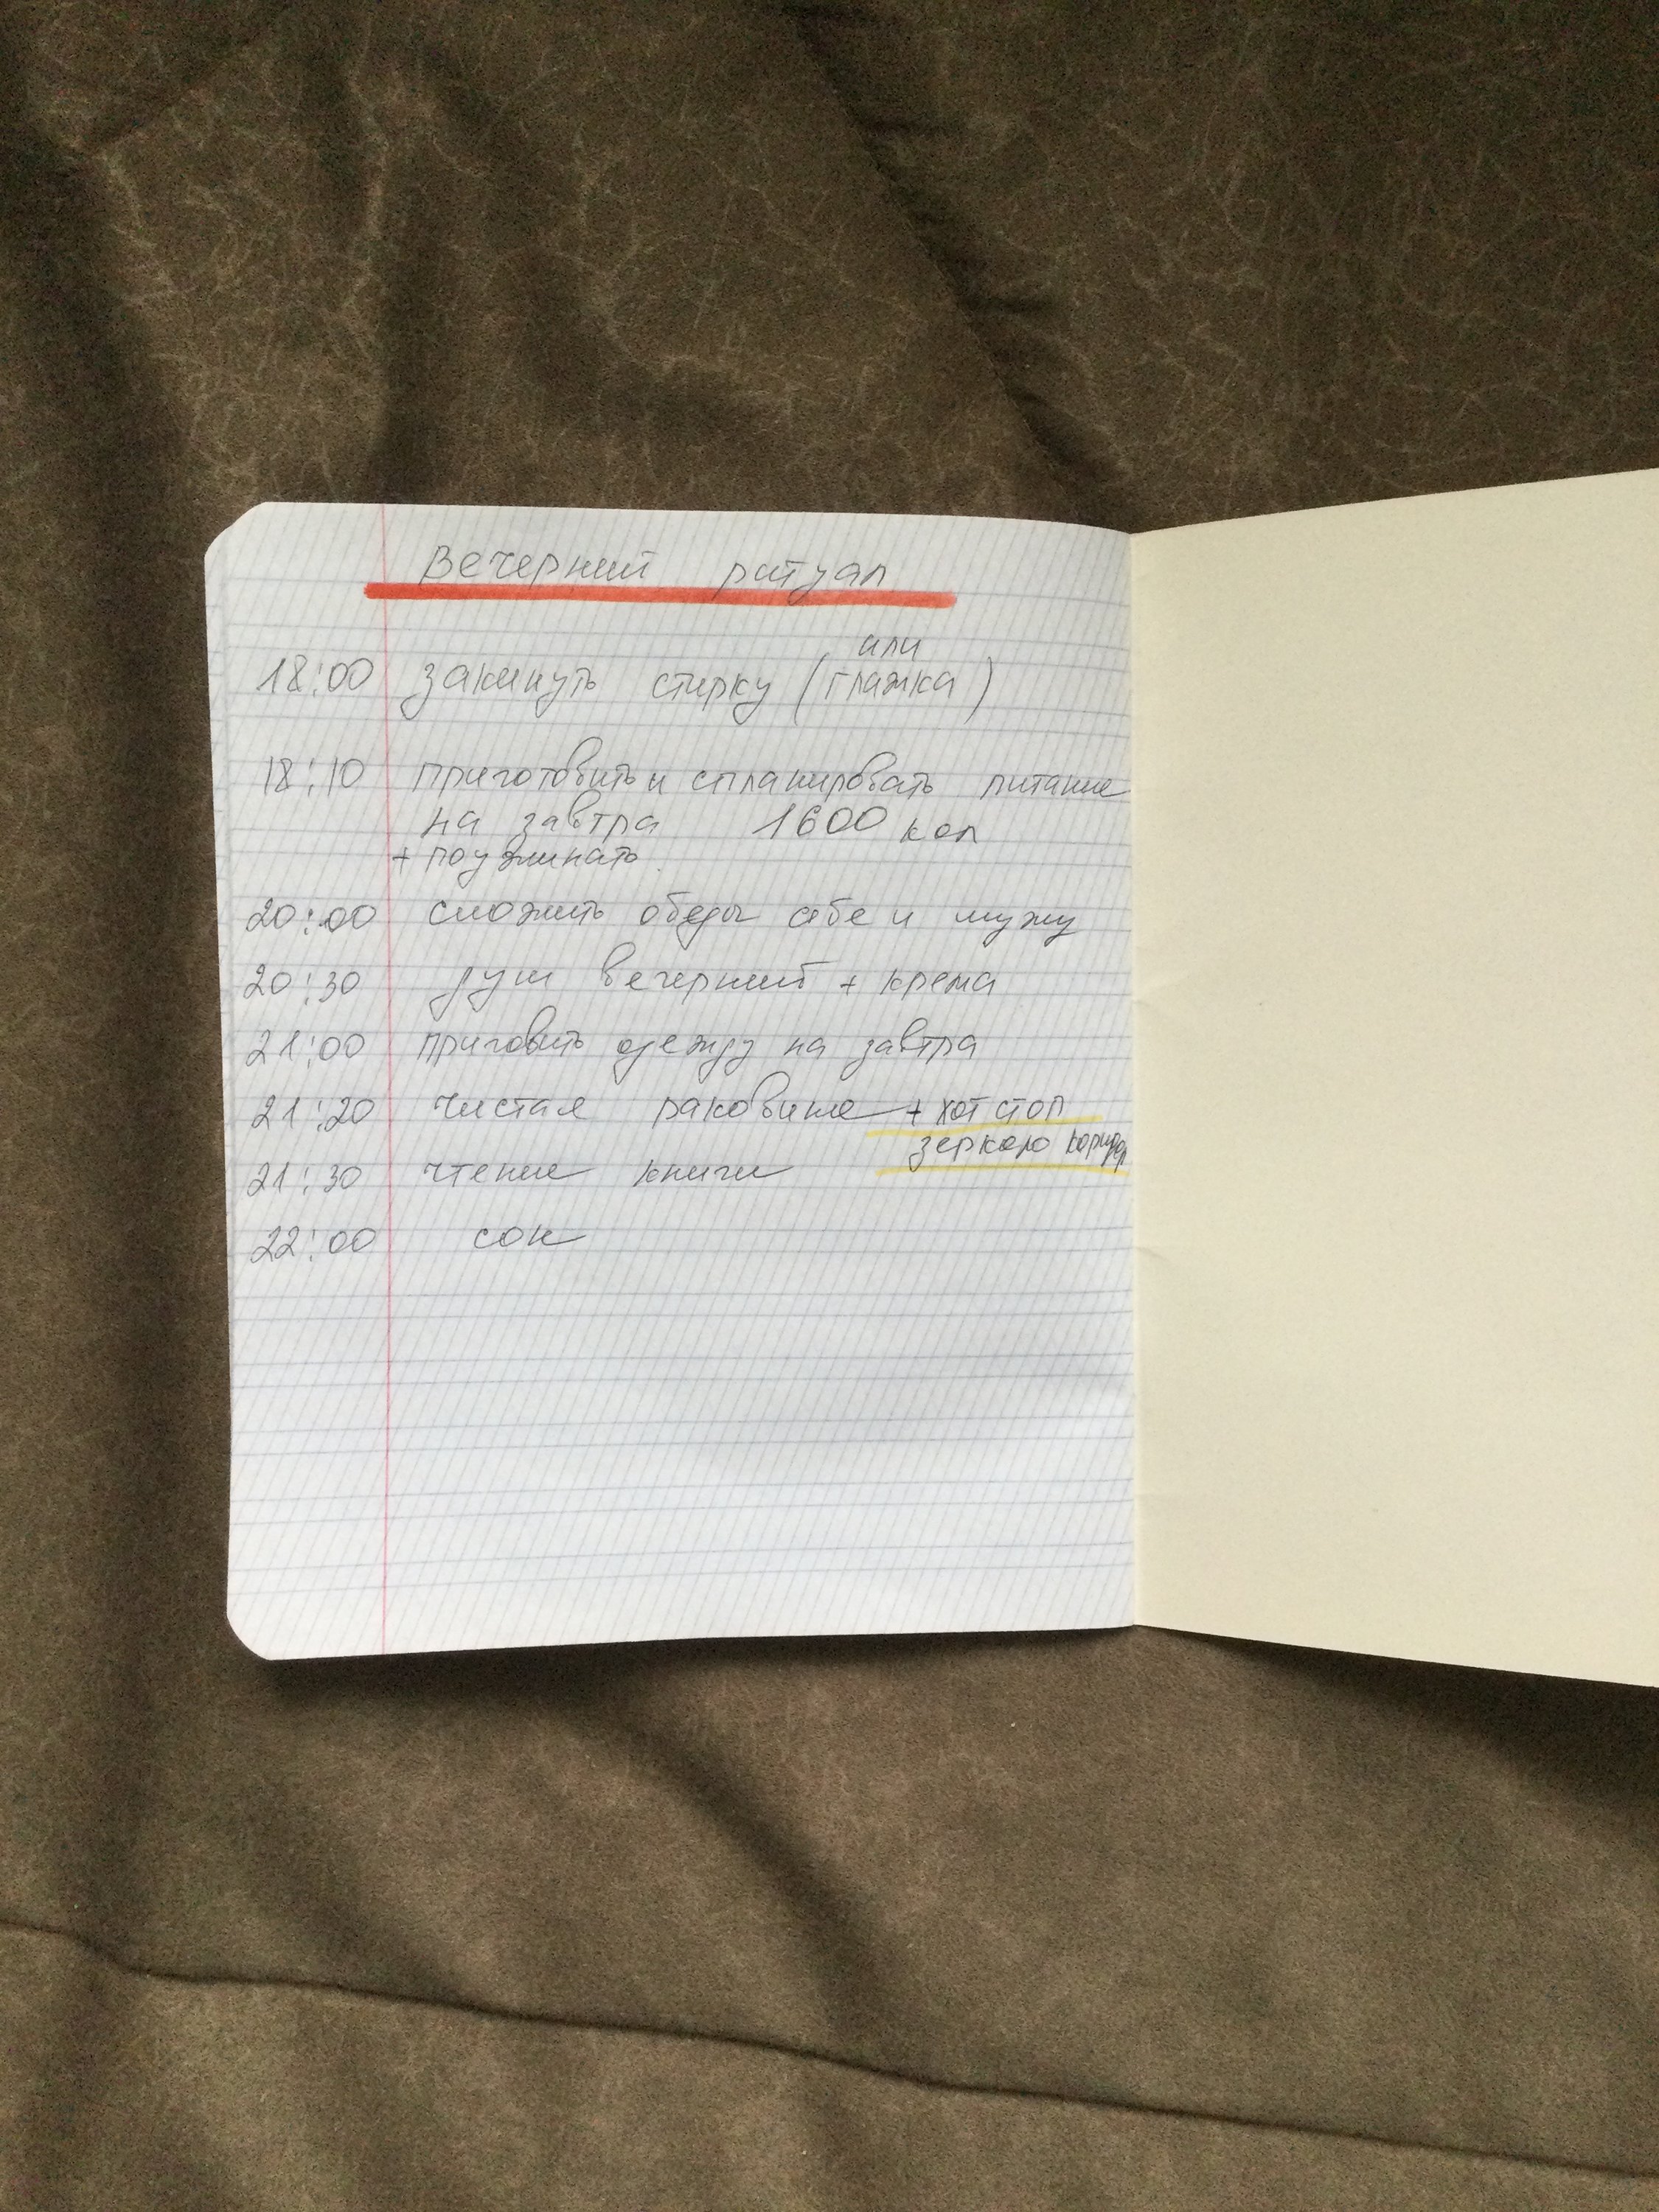 Вечерний ритуал
или
18:00 закинуть стирку (глажка)
18:10 приготовить и спланировать питание
на завтра 1600 кал
+ поужинать.
20:00 сложить обеды себе и мужу
20:30 душ вечерний + крема
21:00 приговить одежду на завтра
21:20 чистая раковине + хот стоп
зеркало коридор
21:30 чтение книги
22:00 сон